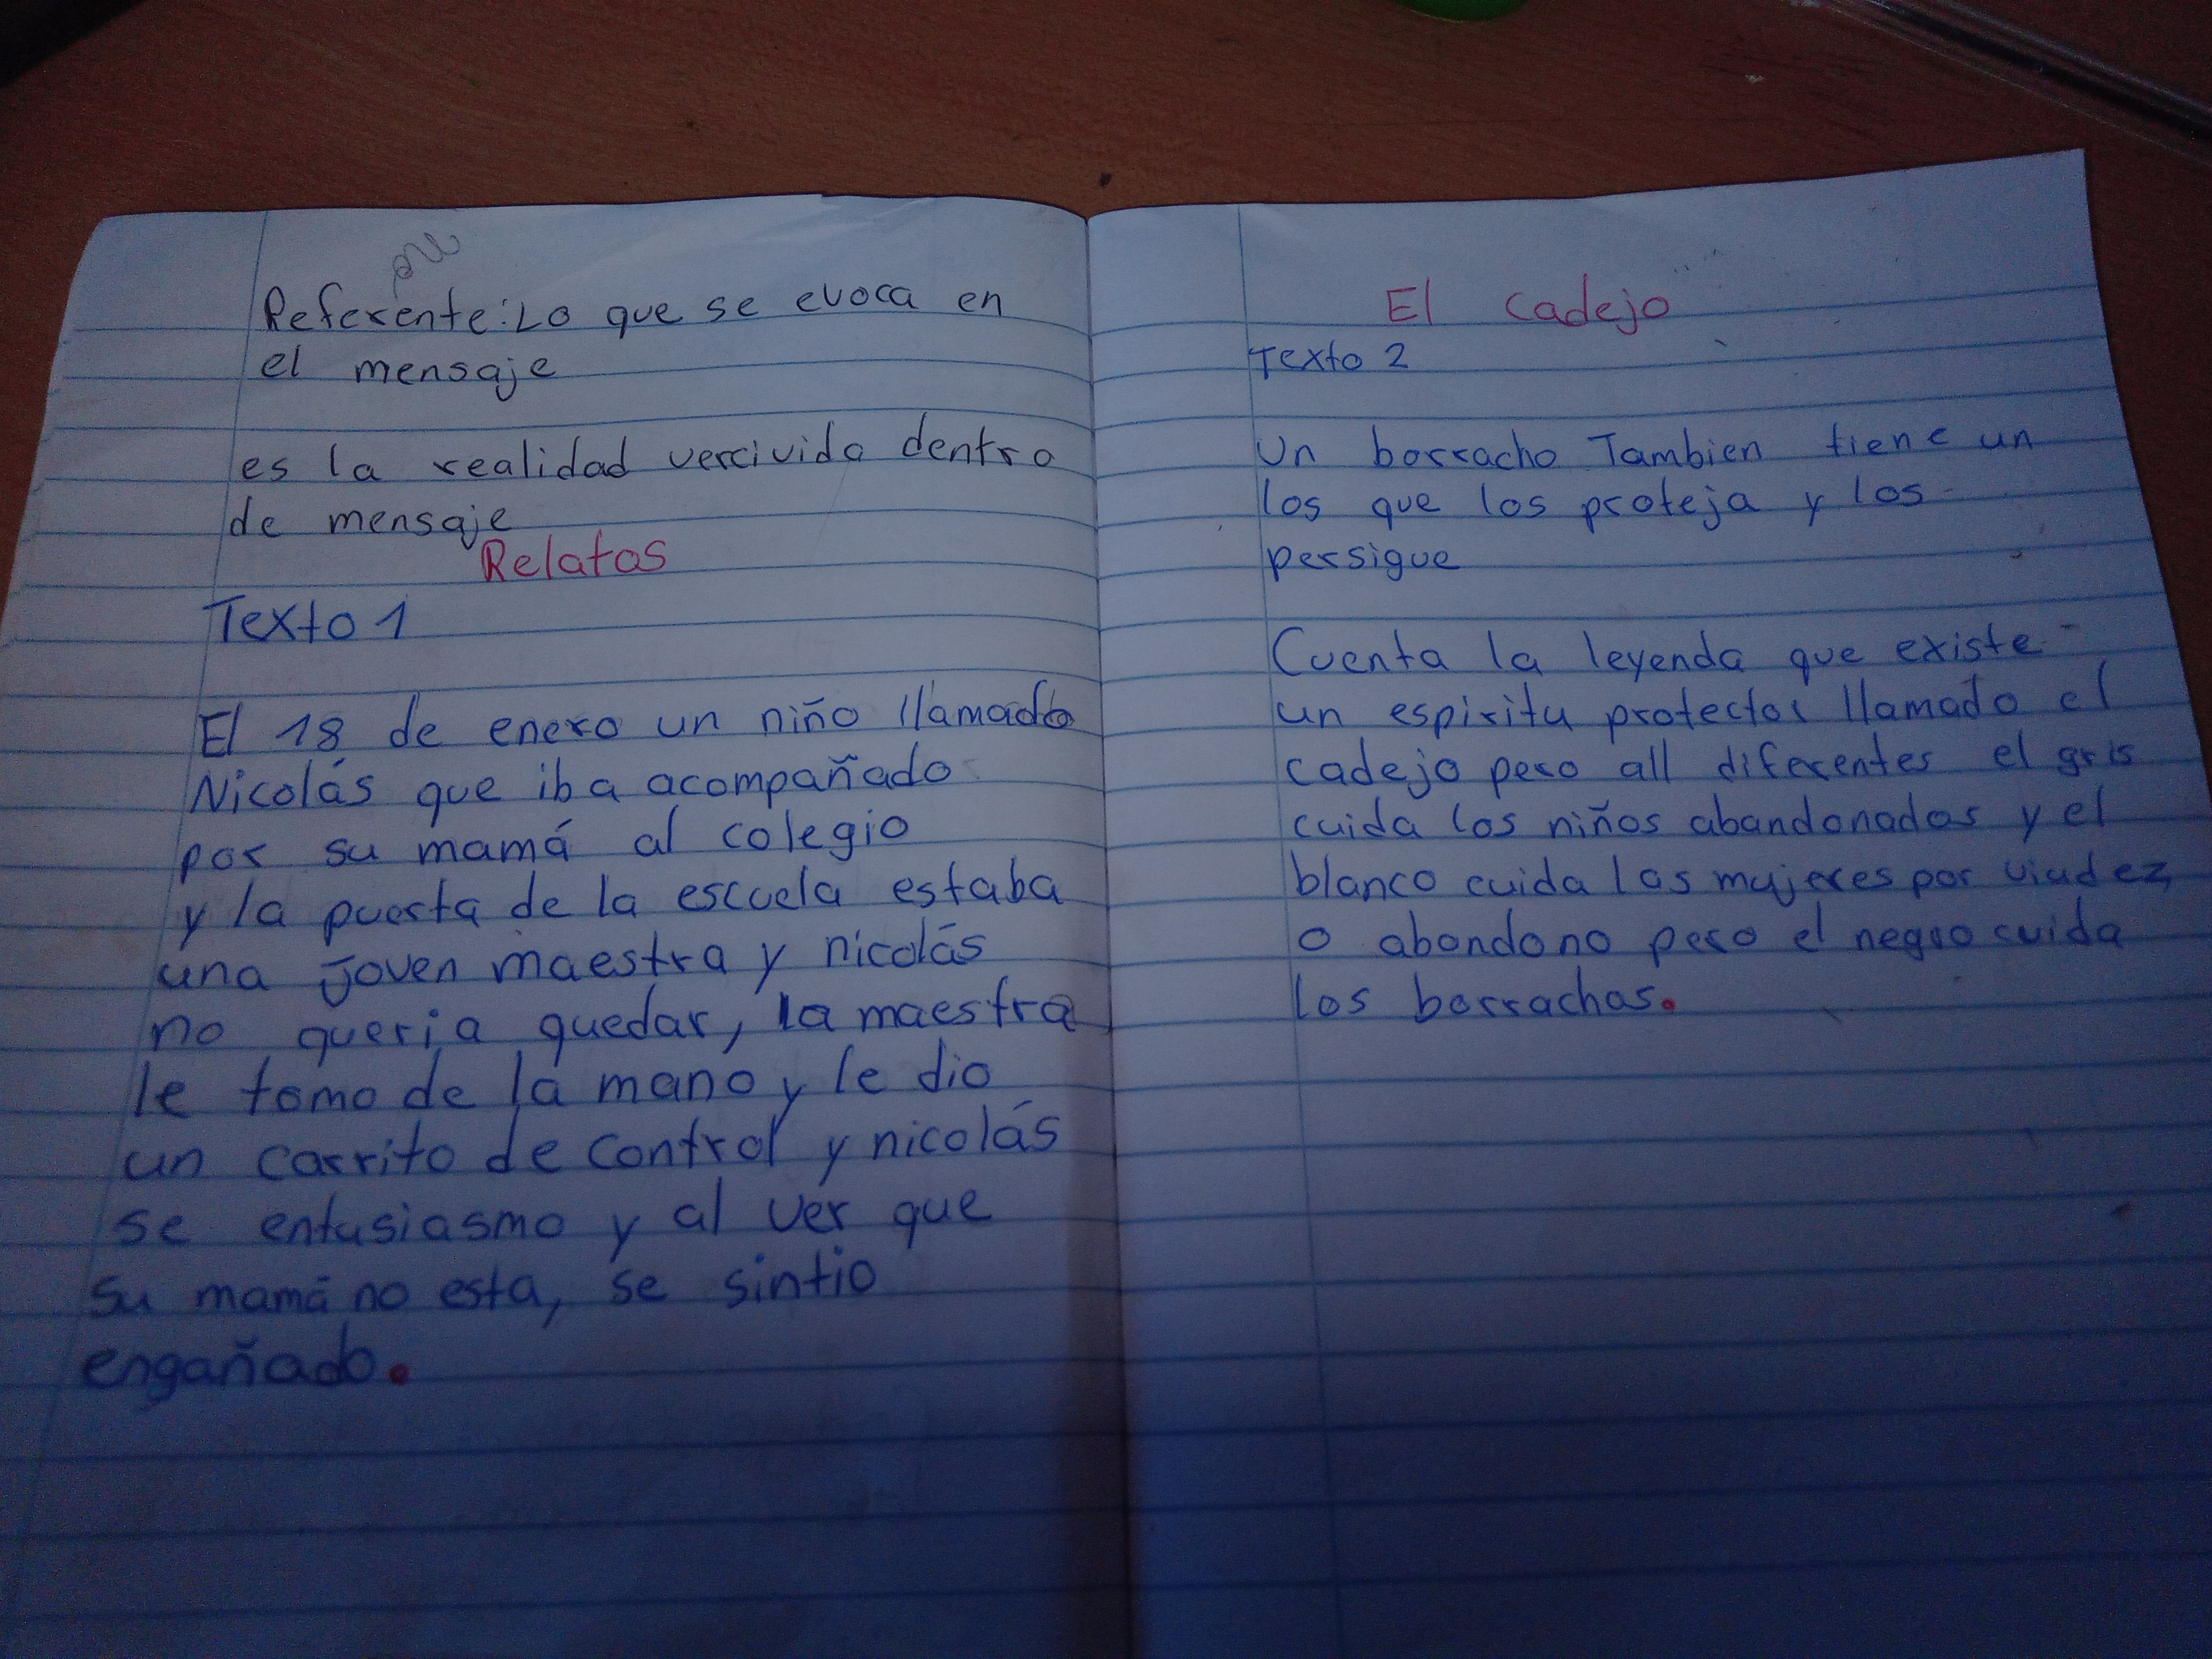 Referente: Lo que se evoca en
el mensaje
es la realidad vercivida dentro
de mensaje
Relatos
Texto 1
El 18 de enero un niño llamado
Nicolás que iba acompañado
por su mamá al colegio
y la puerta de la escuela estaba
una joven maestra y nicolás
no queria quedar, la maestra
le tomo de la mano y le dio
un carrito de control y nicolás
se entusiasmo y al ver que
su mamá no esta, se sintio
engañado.
El cadejo
Texto 2
Un borracho Tambien tiene un
los que los proteja y los
persigue
Cuenta la leyenda que existe
un espiritu protector llamado el
cadejo pero all diferentes el gris
cuida los niños abandonados y el
blanco cuida las mujeres por viudez
o abondono pero el negro cuida
los borrachos.